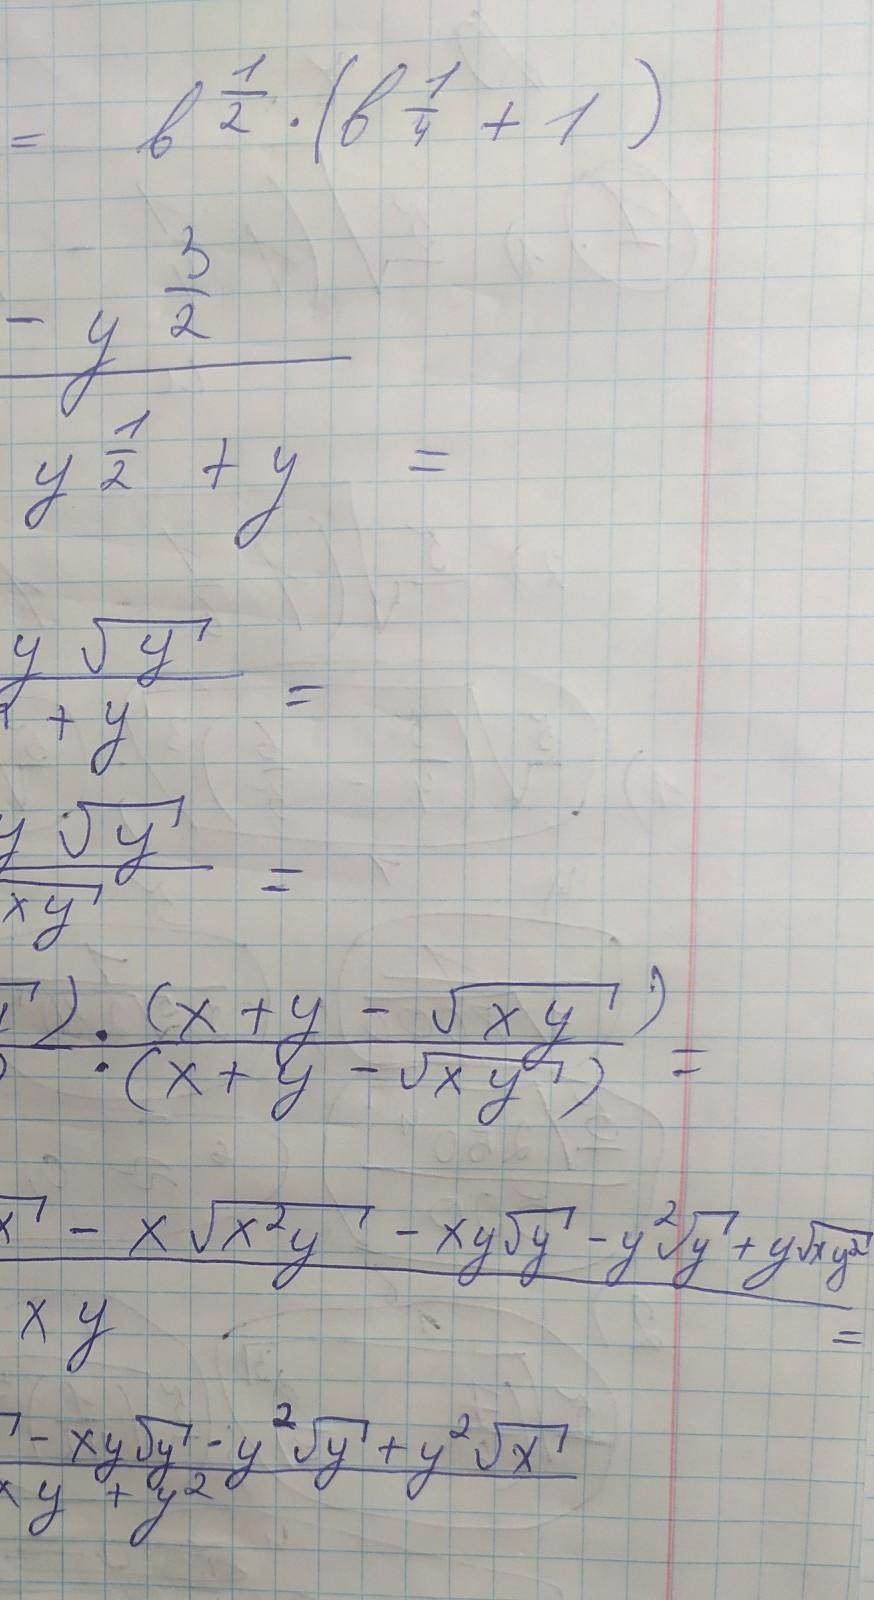 = b^{1/2} · (b^{1/4} + 1)
- y^{3/2}
y^{1/2} + y =
y √y =
+ y
y √y =
xy
) · (x + y - √xy) =
· (x + y - √xy)
- x √x²y - xy√y - y²√y + y√xy²
xy =
- xy√y - y²√y + y²√x
xy + y²